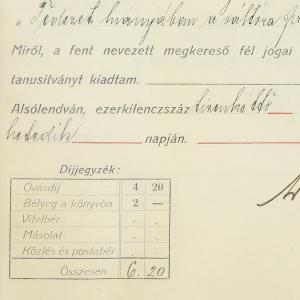 " Fedezet hiányában a váltóra
Miről, a fent nevezett megkereső fél jogai
tanusitványt kiadtam.
Alsólendván, ezerkilenczszáz tizenkettő
hetedik napján.
Dijjegyzék:
Óvásdij 4 20
Bélyeg a könyvön 2 —
Vitelbér . .
Másolat . .
Közlés és postabér . .
Összesen 6. 20